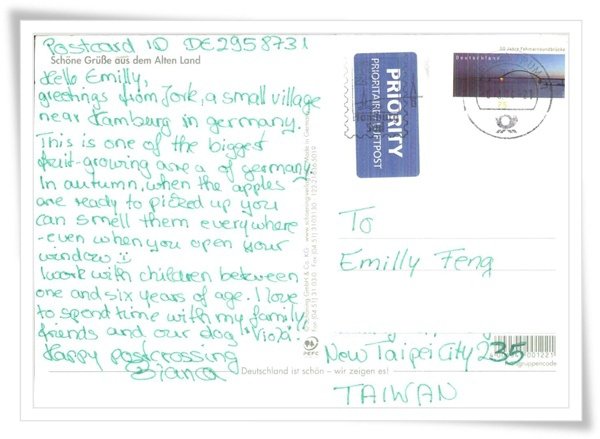 Postcard ID DE2958731
Schöne Grüße aus dem Alten Land
Hello Emilly,
greetings from Jork, a small village
near Hamburg in germany.
This is one of the biggest
fruit-growing area of germany.
In autumn, when the apples
are ready to picked up you
can smell them everywhere
-even when you open your
window
I work with children between
one and six years of age. I love
to spend time with my family,
friends and our dog "Viola".
Happy postcrossing
Bianca
PRIORITY
PRIORITAIRE/LUFTPOST
50 Jahre Fehmarnsundbrücke
Deutschland
75
To
Emilly Feng
New Taipei City 235
TAIWAN
PEFC
001221
gruppencode
Deutschland ist schön – wir zeigen es!